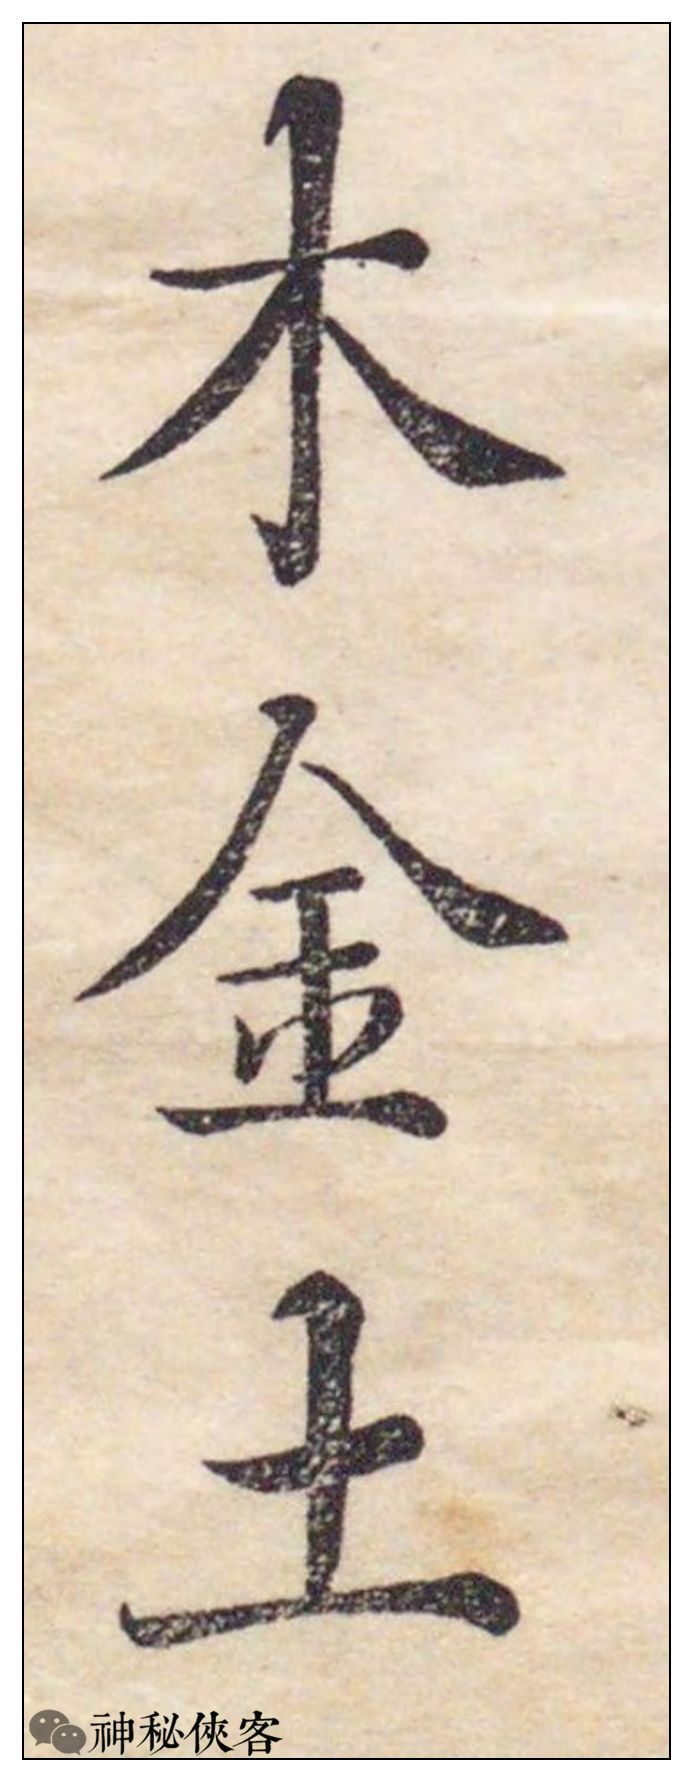 木金土
神秘俠客